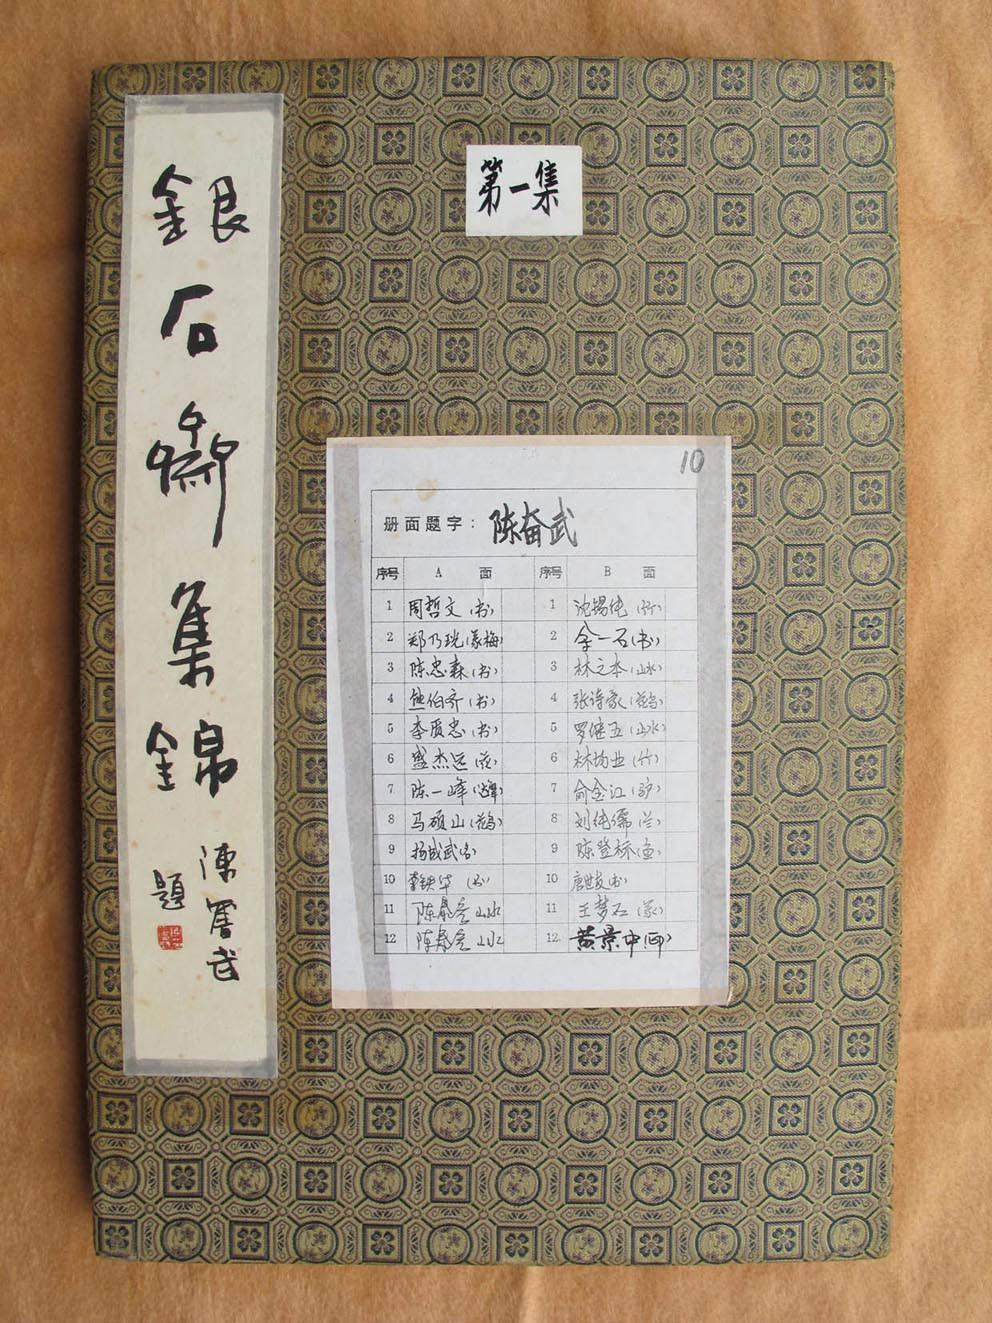 銀石斋集錦
陳奮武
題
第一集
10
册面题字：陈奋武
序号 A 面 序号 B 面
1 周哲文（书） 1 沈锡纯（竹）
2 郑乃珖（篆梅） 2 余一石（书）
3 陈忠森（书） 3 林之本（山水）
4 熊伯齐（书） 4
5 李质忠（书） 5 罗继五（山水）
6 盛杰运（花） 6 林均业（竹）
7 陈一峰 7 俞金江（驴）
8 马硕山（花鸟） 8 刘纯儒（兰）
9 杨成武（书） 9 陈登标（鱼）
10 李铁华（书） 10
11 山水 11 王梦石（篆）
12 山水 12 黄景中（画）